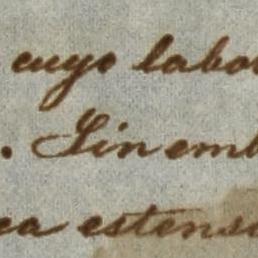 cuyo labor
. Sin emb
ea estensa